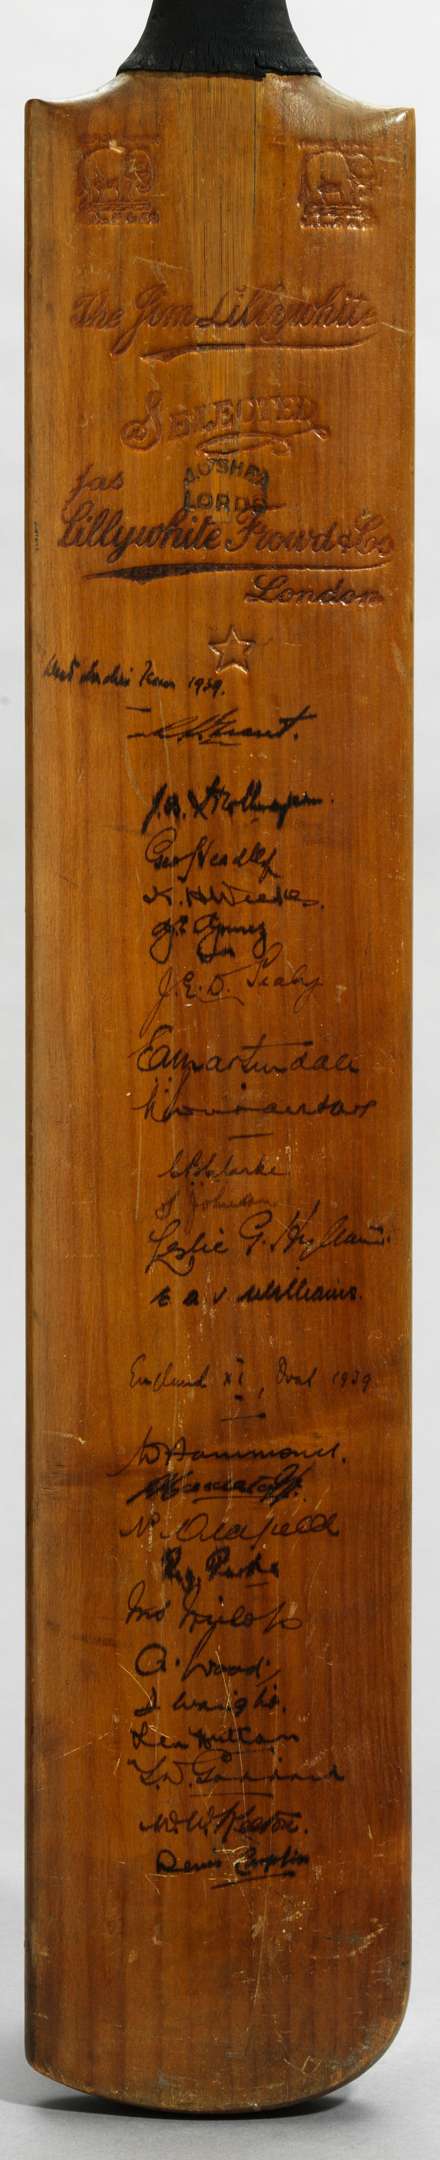 The Jim Lillywhite
SELECTED
J. O'SHEA
LORDS
Jas
Lillywhite Frowd & Co
London
West Indies Tour 1939.
Grant.
J. B. Stollmeyer.
Geo Headley
K. H. Weekes.
G. Gomez
J. E. D. Sealy
E. A. Martindale
C. B. Clarke
T Johnson
Leslie G. Hylton.
E A V Williams.
England XI, Oval 1939
W Hammond.
N. Oldfield
Reg Perks
A. Wood.
D. Wright.
Len Hutton
T. W. Goddard
W. W. Keeton.
Denis Compton